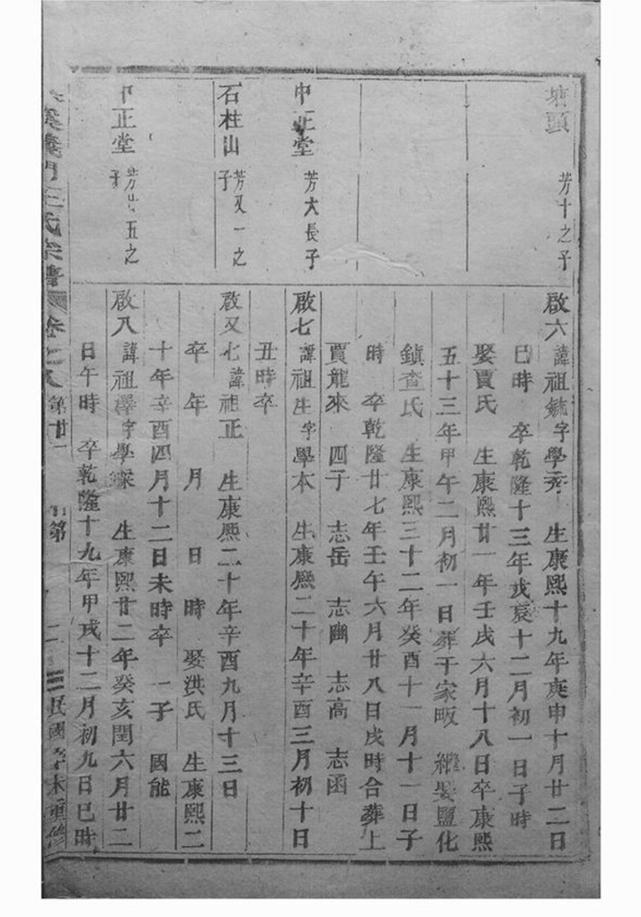 塘頭 芳十之子
啟六 諱祖 字學秀 生康熙十九年庚申十月廿二日
巳時 卒乾隆十三年戊辰十二月初一日子時
娶賈氏 生康熙廿一年壬戌六月十八日卒康熙
五十三年甲午二月初一日葬于家畈 繼娶鹽化
鎮查氏 生康熙三十二年癸酉十一月十一日子
時 卒乾隆廿七年壬午六月廿八日戌時合葬上
賈龍來 四子 志岳 志幽 志高 志函
中正堂 芳大長子
啟七 諱祖生字學本 生康熙二十年辛酉三月初十日
丑時卒
石柱山 芳又一之子
啟又七 諱祖正 生康熙二十年辛酉九月十三日
卒 年 月 日 時 娶洪氏 生康熙二
十年辛酉四月十二日未時卒 一子 國能
中正堂 芳廿五之子
啟八 諱祖澤字學 生康熙廿二年癸亥閏六月廿二
日午時 卒乾隆十九年甲戌十二月初九日巳時
門王氏宗譜 卷之八 第廿一 民國辛未重修